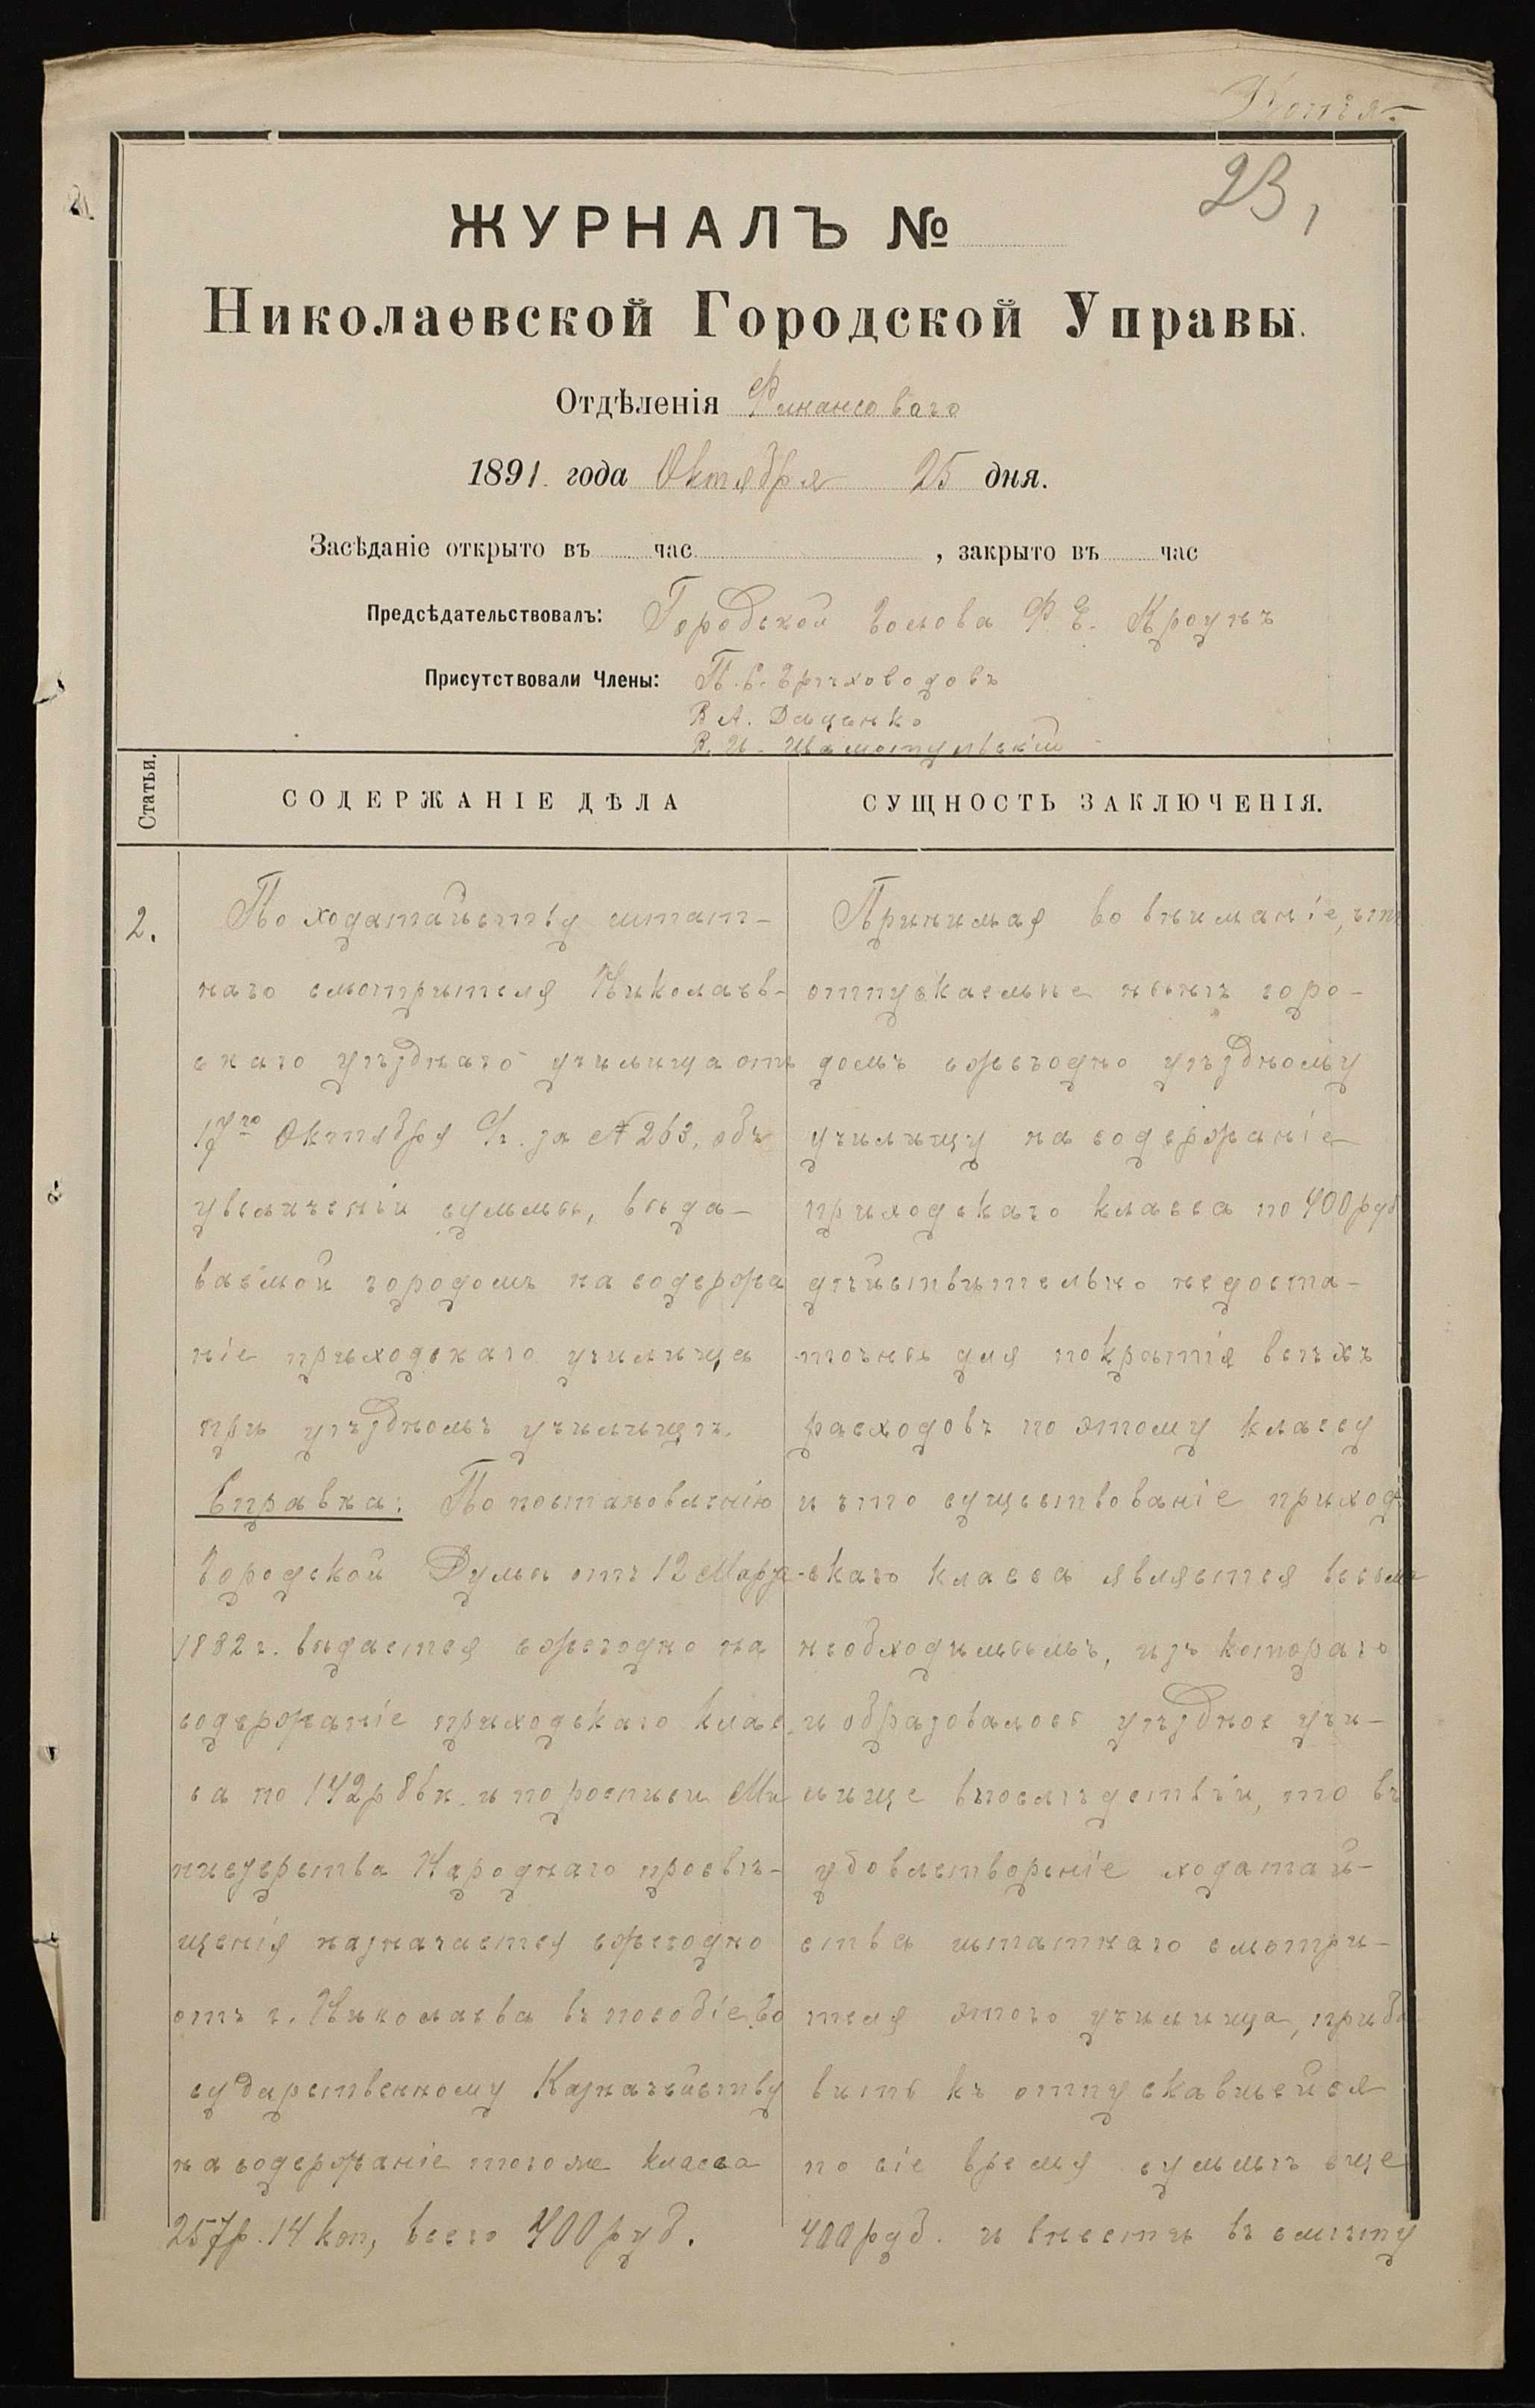 Копія.
23,
ЖУРНАЛЪ №
Николаевской Городской Управы.
Отдѣленія Финансоваго
1891 года Октября 25 дня.
Засѣданіе открыто въ час , закрыто въ час
Предсѣдательствовалъ: Городской Голова Ф. Е. Кроунъ
Присутствовали Члены: П. С.
В А. Даценко
В. И.
Статьи.
СОДЕРЖАНІЕ ДѢЛА
2.
По ходатайству штат-
наго смотрителя Николаев-
скаго уѣзднаго училища отъ
17го Октября с/г. за № 263, объ
увеличеніи суммы, выда-
ваемой городомъ на содержа
ніе приходскаго училища
при уѣздномъ училищѣ.
Справка: По постановленію
Городской Думы отъ 12 Марта
1882 г. выдается ежегодно на
содержаніе приходскаго клас
са по 142р 86к. и по росписи Ми
нистерства Народнаго просвѣ-
щенія назначается ежегодно
отъ г. Николаева въ пособіе Го
сударственному Казначейству
на содержаніе того же класса
257р. 14 коп, всего 400 руб.
СУЩНОСТЬ ЗАКЛЮЧЕНІЯ.
Принимая во вниманіе, что
отпускаемые нынѣ горо-
домъ ежегодно уѣздному
училищу на содержаніе
приходскаго класса по 400 руб
дѣйствительно недоста-
точны для покрытія всѣхъ
расходовъ по этому классу
и что существованіе приход-
скаго класса является весьма
необходимымъ, изъ котораго
и образовалось уѣздное учи-
лище впослѣдствіи, то въ
удовлетвореніе ходатай-
ства штатнаго смотри-
теля этого училища, приба
вить къ отпускавшейся
по сіе время суммѣ еще
400 руб. и внести въ смѣту